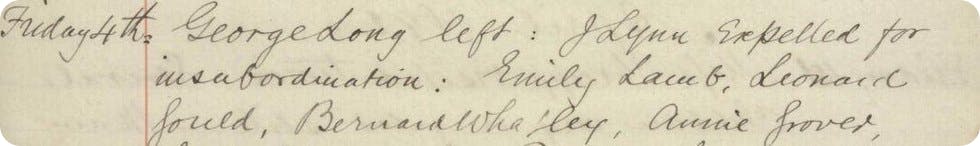 Friday 4th: George Long left: J Lynn Expelled for
insubordination: Emily Lamb, Leonard
Gould, Bernard Whalley, Annie Grover,